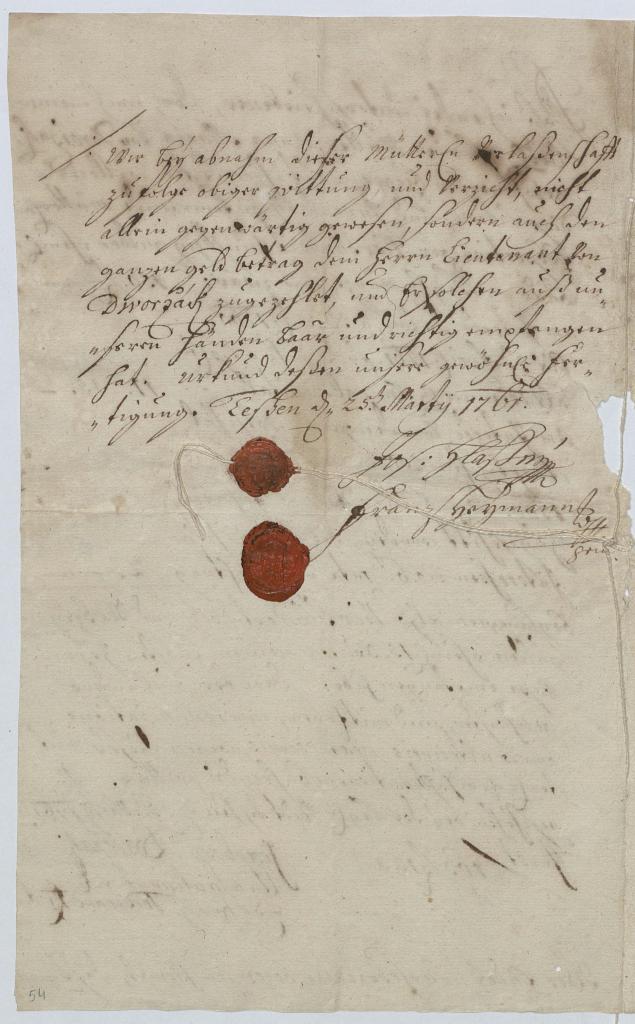 Wir bey abnahm dieser Mütterln Verlaßenschafft
zufolge obiger quittung und Verzicht, nicht
allein gegenwärtig gewesen, sondern auch den
ganzen geld betrag dem Herrn Lieutenant von
Dworzack zugezehlet, und Er solchen auß un„
„seren Händen baar und richtig empfangen
hat. Urkund deßen unsere gewöhnl: Fer„
„tigung. Teschen d. 25t. Martÿ 1761.
Jos:
Frantz Heymann
54